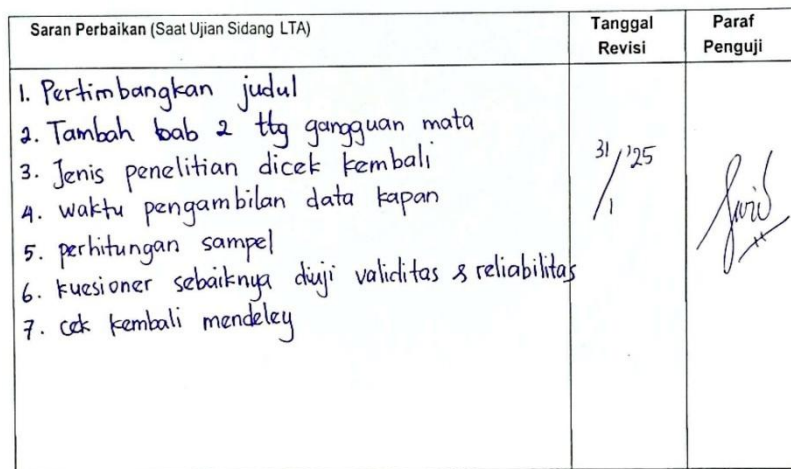 Saran Perbaikan (Saat Ujian Sidang LTA)
Tanggal Revisi
Paraf Penguji
1. Pertimbangkan judul
2. Tambah bab 2 ttg gangguan mata
3. Jenis penelitian dicek kembali
4. waktu pengambilan data kapan
5. perhitungan sampel
6. kuesioner sebaiknya diuji validitas & reliabilitas
7. cek kembali mendeley
31/1 '25